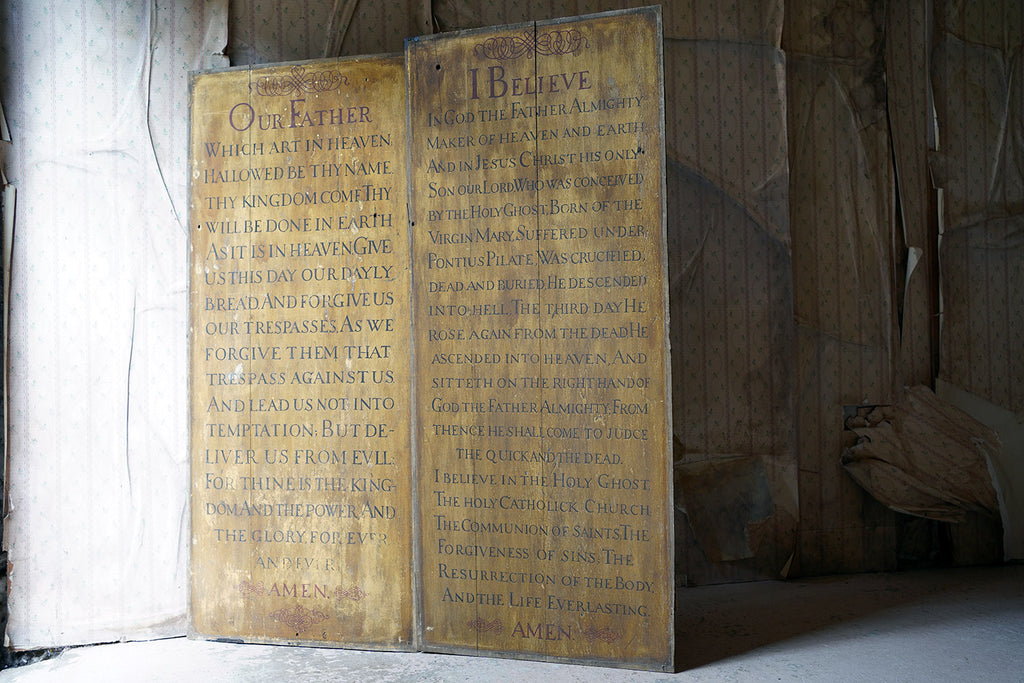 Our Father
Which art in heaven
Hallowed be thy name.
Thy kingdom come. Thy
will be done in earth
As it is in heaven. Give
us this day our dayly
bread. And forgive us
our trespasses, As we
forgive them that
trespass against us
And lead us not into
temptation; But de-
liver us from evil:
For thine is the king-
dom. And the power, And
the glory, for ever
and ever.
Amen.
I Believe
In God the Father Almighty
Maker of heaven and earth:
And in Jesus Christ his only
Son our Lord, Who was conceived
by the Holy Ghost, Born of the
Virgin Mary, Suffered under
Pontius Pilate, Was crucified,
dead and buried, He descended
into hell, The third day He
rose again from the dead, He
ascended into heaven, And
sitteth on the right hand of
God the Father Almighty; From
thence he shall come to judge
the quick and the dead.
I believe in the Holy Ghost
The holy Catholick Church
The Communion of Saints, The
Forgiveness of sins: The
Resurrection of the Body,
And the Life Everlasting.
Amen